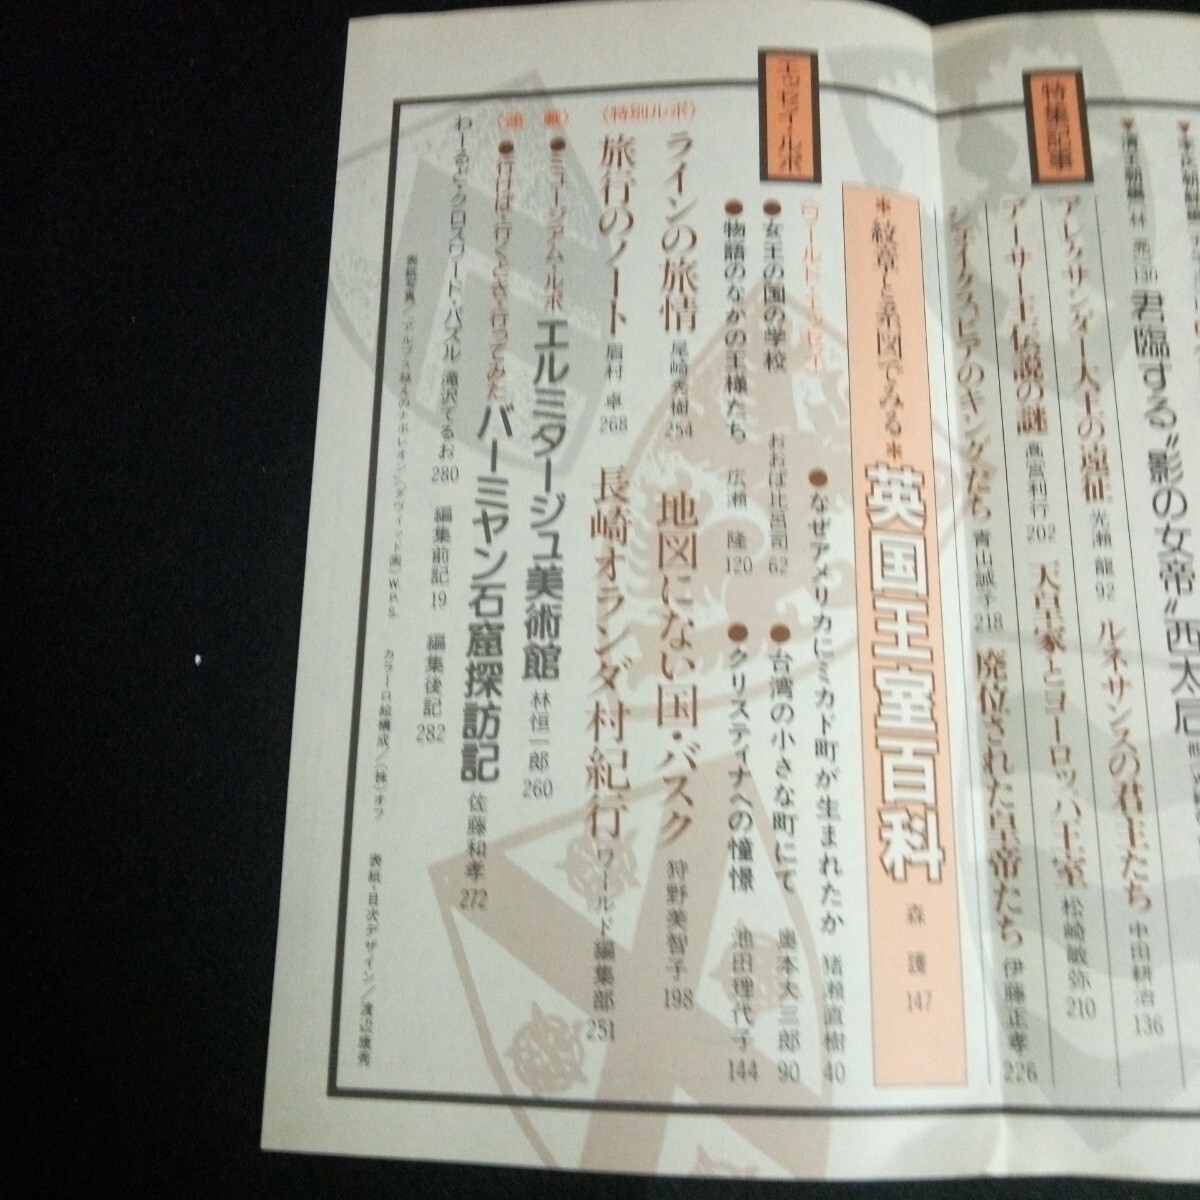 ▼清王朝編 林 亮 130 君臨する〝影の女帝〟西太后
特集記事
アレクサンダー大王の遠征 光瀬 龍 92
ルネサンスの君主たち 中田耕治 136
アーサー王伝説の謎 高宮利行 202
大皇家とヨーロッパ王室 松崎敏弥 210
シェイクスピアのキングたち 青山誠子 218
廃位された皇帝たち 伊藤正孝 226
*紋章と系図でみる* 英国王室百科 森 護 147
エッセイ・ルポ
〈ワールド・エッセイ〉
●なぜアメリカにミカド町が生まれたか 猪瀬直樹 40
●女王の国の学校 おおば比呂司 62
●台湾の小さな町にて 奥本大三郎 90
●物語のなかの王様たち 広瀬 隆 120
●クリスティナへの憧憬 池田理代子 144
〈特別ルポ〉
ラインの旅情 尾崎秀樹 254
地図にない国・バスク 狩野美智子 198
旅行のノート 眉村 卓 268
長崎オランダ村紀行 ワールド編集部 251
〈連載〉
●ミュージアム・ルポ エルミタージュ美術館 林恒一郎 260
●行けば・行くとき・行ってみた バーミヤン石窟探訪記 佐藤和孝 272
わーるど・クロスワード・パズル 滝沢てるお 280
編集前記 19
編集後記 282
表紙写真／アルプス越えのナポレオン(ダヴィッド画) W.P.S.
カラー口絵構成／(株)オフ
表紙・目次デザイン／渡辺康秀